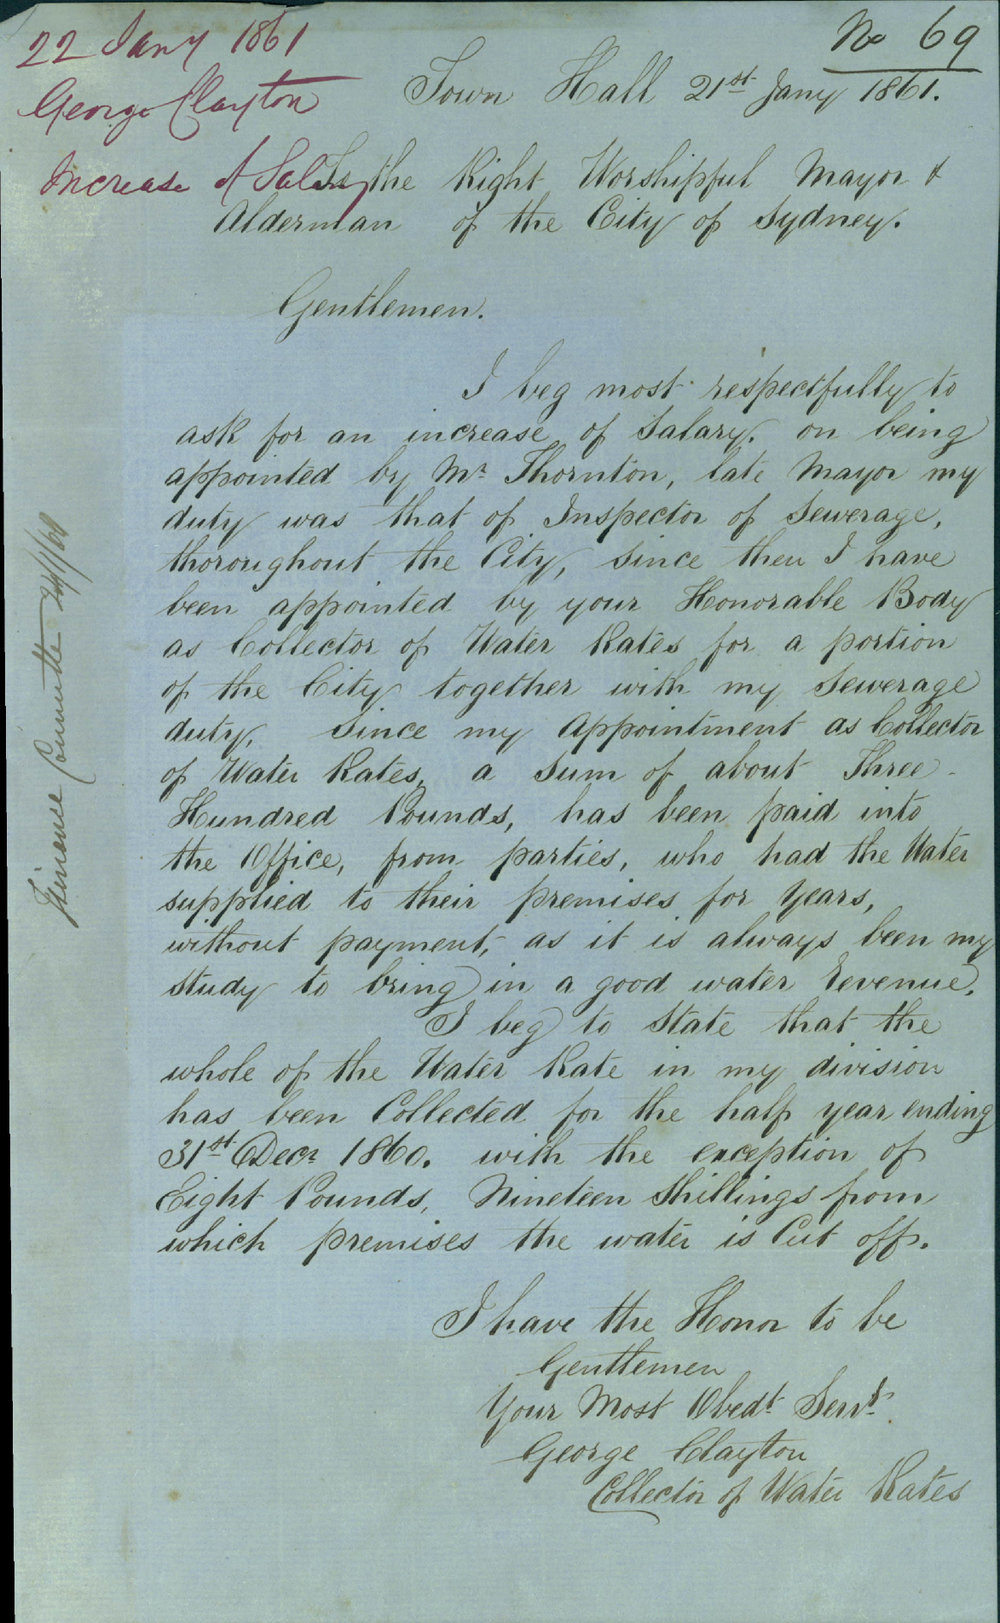 22 Jany 1861
No 69
George Clayton
Town Hall 21st Jany 1861.
Increase of Salary
To the Right Worshipful Mayor &
Alderman of the City of Sydney.
Gentlemen.
I beg most respectfully to
ask for an increase of Salary. on being
appointed by Mr. Thornton, late Mayor my
duty was that of Inspector of Sewerage,
thoroughout the City, since then I have
been appointed by your Honorable Body
as Collector of Water Rates for a portion
of the City together with my Sewerage
duty. Since my Appointment as Collector
of Water Rates, a Sum of about Three
Hundred Pounds, has been paid into
the Office, from parties, who had the Water
supplied to their premises for Years,
without payment, as it is always been my
study to bring in a good water Revenue.
I beg to State that the
whole of the Water Rate in my division
has been Collected for the half year ending
31st Decr 1860. with the exception of
Eight Pounds, Nineteen Shillings from
which premises the water is Cut off.
I have the Honor to be
Gentlemen
Your Most Obedt Servt.
George Clayton
Collector of Water Rates
Committee